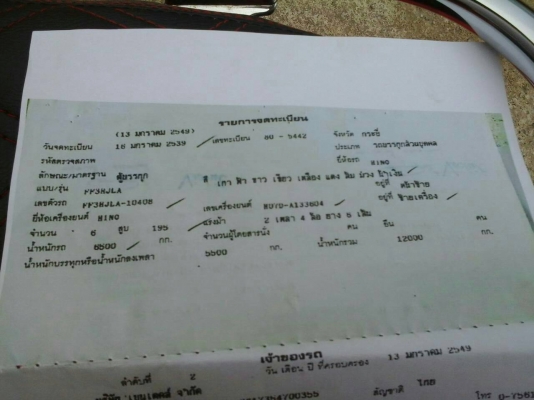 รายการจดทะเบียน
(13 มกราคม 2549)
วันจดทะเบียน 16 มกราคม 2539 เลขทะเบียน 80 - 5442 จังหวัด กระบี่
รหัสตรวจสภาพ ประเภท รถบรรทุกส่วนบุคคล
ลักษณะ/มาตรฐาน ตู้บรรทุก สี เทา ฟ้า ขาว เขียว เหลือง แดง ส้ม ม่วง น้ำเงิน ยี่ห้อรถ HINO
แบบ/รุ่น FF3HJLA
เลขตัวรถ FF3HJLA-10408 เลขเครื่องยนต์ H07D-A133804 อยู่ที่
ยี่ห้อเครื่องยนต์ HINO อยู่ที่
จำนวน 6 สูบ 195 แรงม้า 2 เพลา 4 ล้อ ยาง 6 เส้น
น้ำหนักรถ 6500 กก. จำนวนผู้โดยสารนั่ง คน ยืน คน
น้ำหนักบรรทุกหรือน้ำหนักลงเพลา 5500 กก. น้ำหนักรวม 12000 กก.
เจ้าของรถ
ลำดับที่ 2 วัน เดือน ปี ที่ครอบครอง 13 มกราคม 2549
จำกัด สัญชาติ ไทย โทร